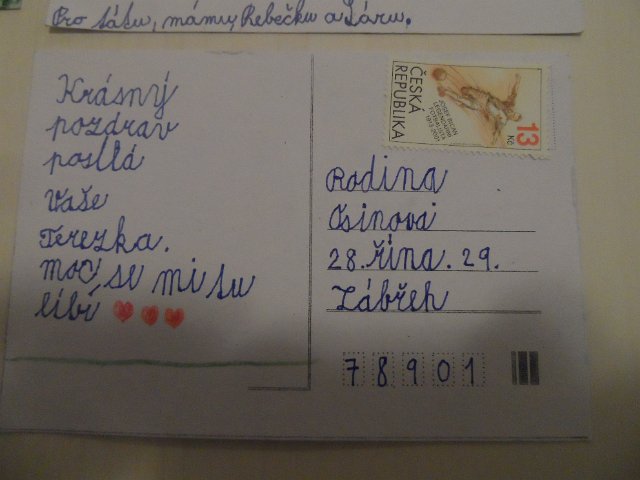 Pro tátu, mámu, Rebečku a Járu.
Krásný
pozdrav
posílá
Vaše
Terezka.
moc, se mi tu
líbí
ČESKÁ
REPUBLIKA
JOSEF BICAN
LEGENDÁRNÍ
FOTBALISTA
1913-2001
13
Kč
Rodina
28. října. 29.
Zábřeh
7 8 9 0 1